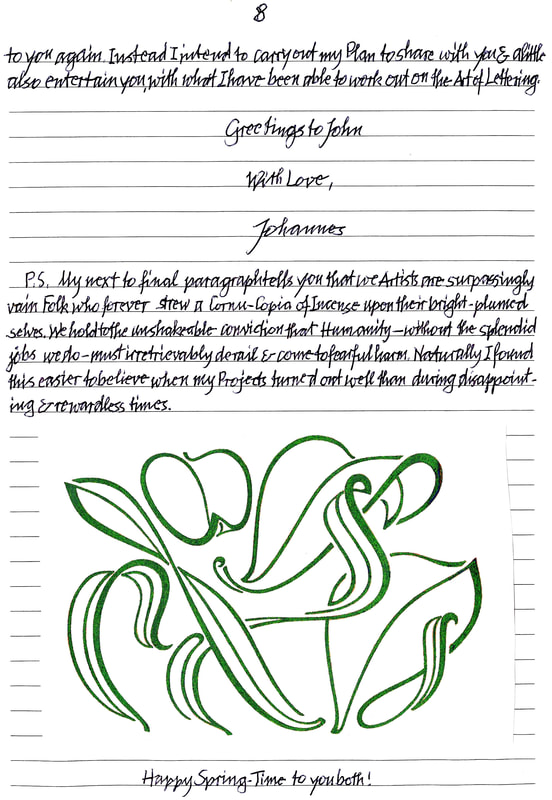 8
to you again. Instead I intend to carry out my Plan to share with you & a little
also entertain you, with what I have been able to work out on the Art of Lettering.
Greetings to John
With Love,
Johannes
P.S. My next to final paragraph tells you that we Artists are surpassingly
vain Folk who forever strew a Cornu-Copia of Incense upon their bright-plumed
selves. We hold to the unshakeable conviction that Humanity—without the splendid
jobs we do—must irretrievably derail & come to fearful harm. Naturally I found
this easier to believe when my Projects turned out well than during disappoint-
ing & rewardless times.
Happy Spring-Time to you both!